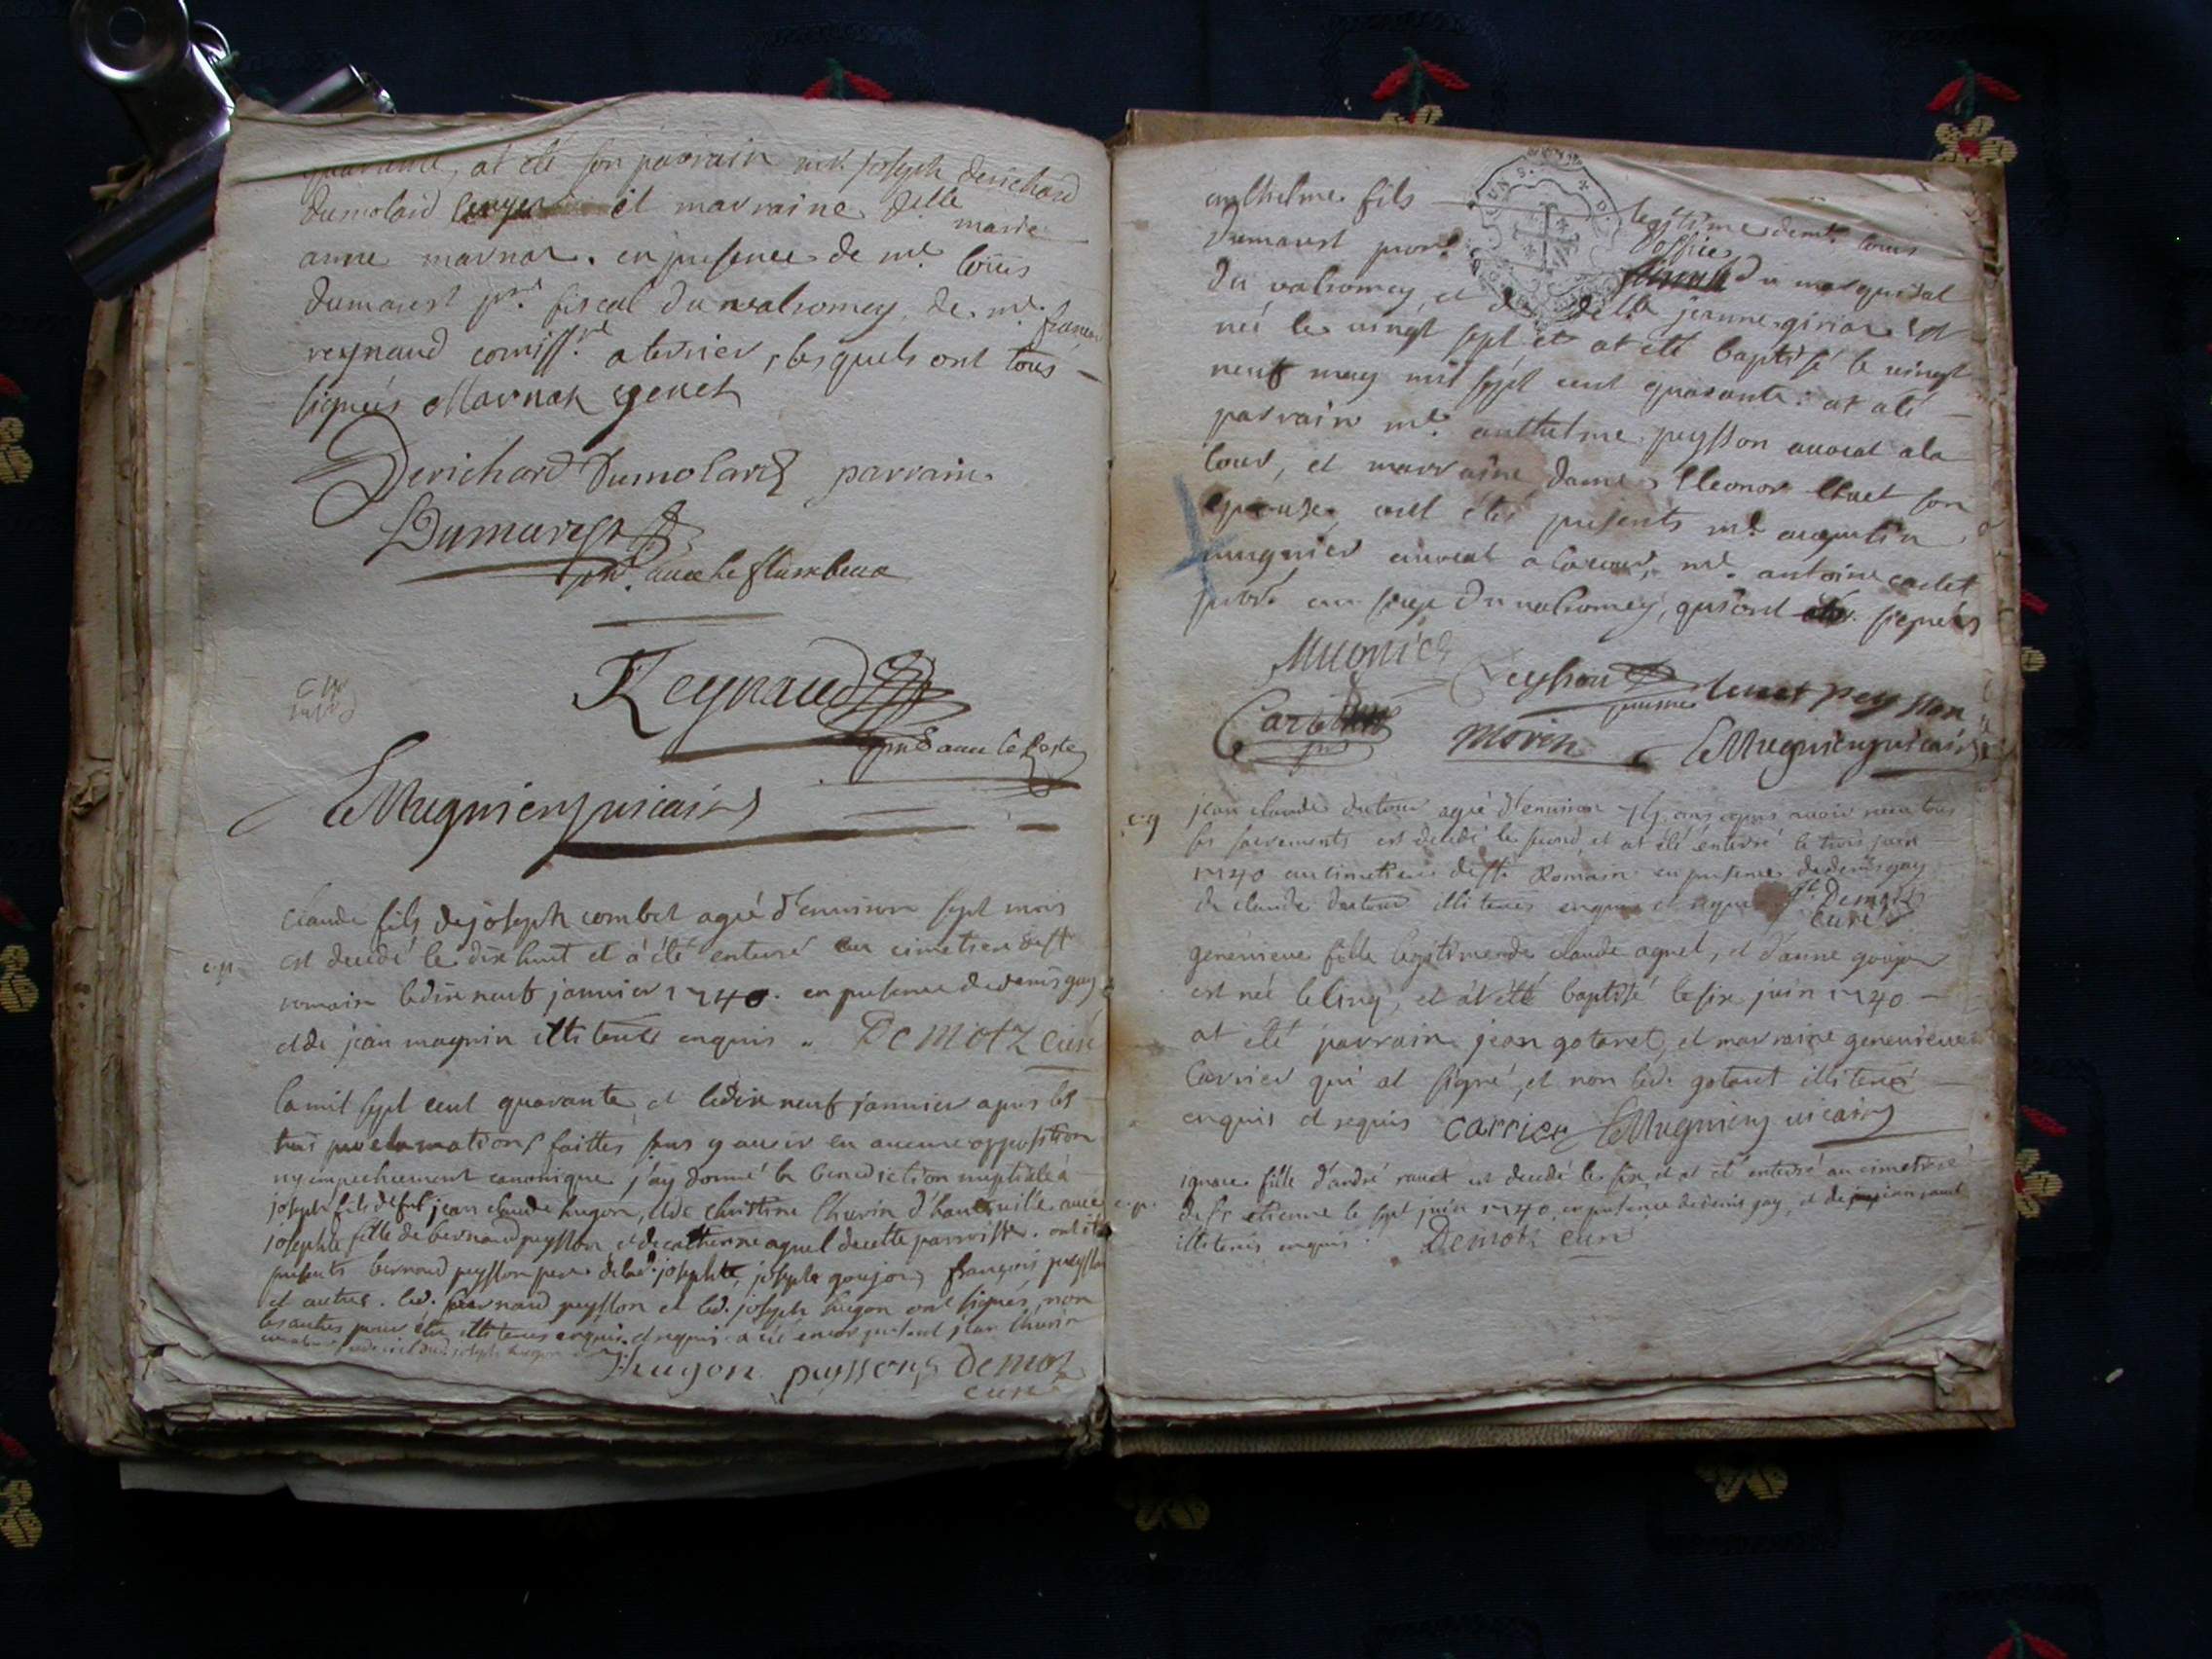 quarante, at été son parrain mr. joseph derichard
dumolard et marraine delle marie
anne marnat. en presence de mr. louis
dumarest pr. fiscal du valromey, de mr. francois
reynaud comissre. a terrier, lesquels ont tous
signés Marnat genet
Derichard Dumolard parrain
Dumarest
pnt. avec le flambeau
Reynaud
pnt avec le Poste
C Mugnier vicaire
claude fils de joseph combet agé d'environ sept mois
est decedé le dix huit et a été enterré au cimetiere de st
romain le dix neuf janvier 1740. en presence de denis gay
et de jean magnin illiterés enquis. De motz curé
l'a mil sept cent quarante, et le dix neuf janvier apres les
trois proclamations faittes sans y avoir eu aucune opposition
ny empechement canonique j'ay donné la benediction nuptiale à
joseph fils de fut jean claude hugon, et de christine thurin d'hauteville avec
josephte fille de bernard peysson et de catherine aquel de cette parroisse. ont été
presents bernard peysson pere de lad. josephte, joseph goujon, françois peysson
et autres. led. bernard peysson et led. joseph hugon ont signés, non
les autres pour être illiterés enquis et requis a été encor present jean thurin
J hugon peysson Demotz
curé
anthelme fils legitime de mr. louis
Dumarest procr. d'office du marquisat
du valromey, et de delle jeanne girier est
né le vingt sept et at été baptisé le vingt
neuf may mil sept cent quarante: at été
parrain mr. anthelme peysson avocat a la
cour, et marraine dame Eleonor son
epouse, ont étés presents mr. augustin
mugnier avocat a la cour, mr. antoine carlet
procr. au siege du valromey, qui ont signés
Mugnier Peysson peysson
Carlet Morin C Mugnier vicaire
c.g jean claude dutour agé d'environ ans apres avoir receu tous
ses sacrements est decedé le second, et at été enterré le trois juin
1740 au cimetiere de st. Romain en presence de denis gay
de claude dutour illiterés enquis et requis Demotz
curé
genevieve fille legitime de claude aquel, et d'anne goujon
est née le cinq, et at été baptisé le six juin 1740
at été parrain jean gotaret, et marraine genevieve
Carrier qui at signé, et non led. gotaret illiteré
enquis et requis carrier C Mugnier vicaire
ignace fille d'andré ravet est decedé le six et at été enterré au cimetiere
de st etienne le sept juin 1740 en presence de denis gay, et de jean ravet
illiterés enquis. Demotz curé